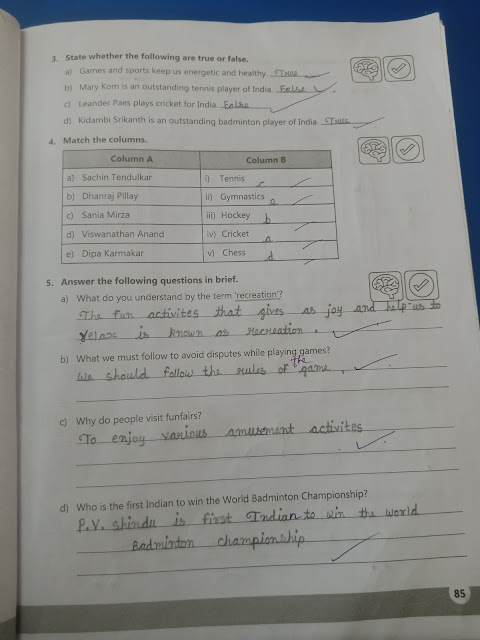 3. State whether the following are true or false.
a) Games and sports keep us energetic and healthy. True
b) Mary Kom is an outstanding tennis player of India. False
c) Leander Paes plays cricket for India. False
d) Kidambi Srikanth is an outstanding badminton player of India. True
4. Match the columns.
Column A Column B
a) Sachin Tendulkar i) Tennis c
b) Dhanraj Pillay ii) Gymnastics e
c) Sania Mirza iii) Hockey b
d) Viswanathan Anand iv) Cricket a
e) Dipa Karmakar v) Chess d
5. Answer the following questions in brief.
a) What do you understand by the term 'recreation'?
The fun activites that gives as joy and help us to
relax is known as recreation.
b) What we must follow to avoid disputes while playing games?
We should follow the rules of the game.
c) Why do people visit funfairs?
To enjoy various amusement activites
d) Who is the first Indian to win the World Badminton Championship?
P.V. shindu is first Indian to win the world
Badminton championship
85